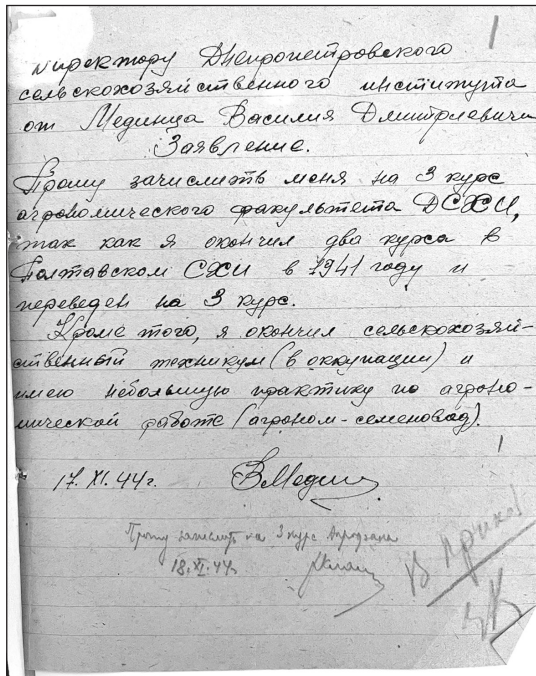 1
Директору Днепропетровского
сельскохозяйственного института
от Мединца Василия Дмитриевича
Заявление.
Прошу зачислить меня на 3 курс
агрономического факультета ДСХИ,
так как я окончил два курса в
Полтавском СХИ в 1941 году и
переведен на 3 курс.
Кроме того, я окончил сельскохозяй-
ственный техникум (в оккупации) и
имею небольшую практику по агроно-
мической работе (агроном-семеновод).
17. XI. 44г. ВМедин
Прошу зачислить на 3 курс
18. XI. 44.
В приказ